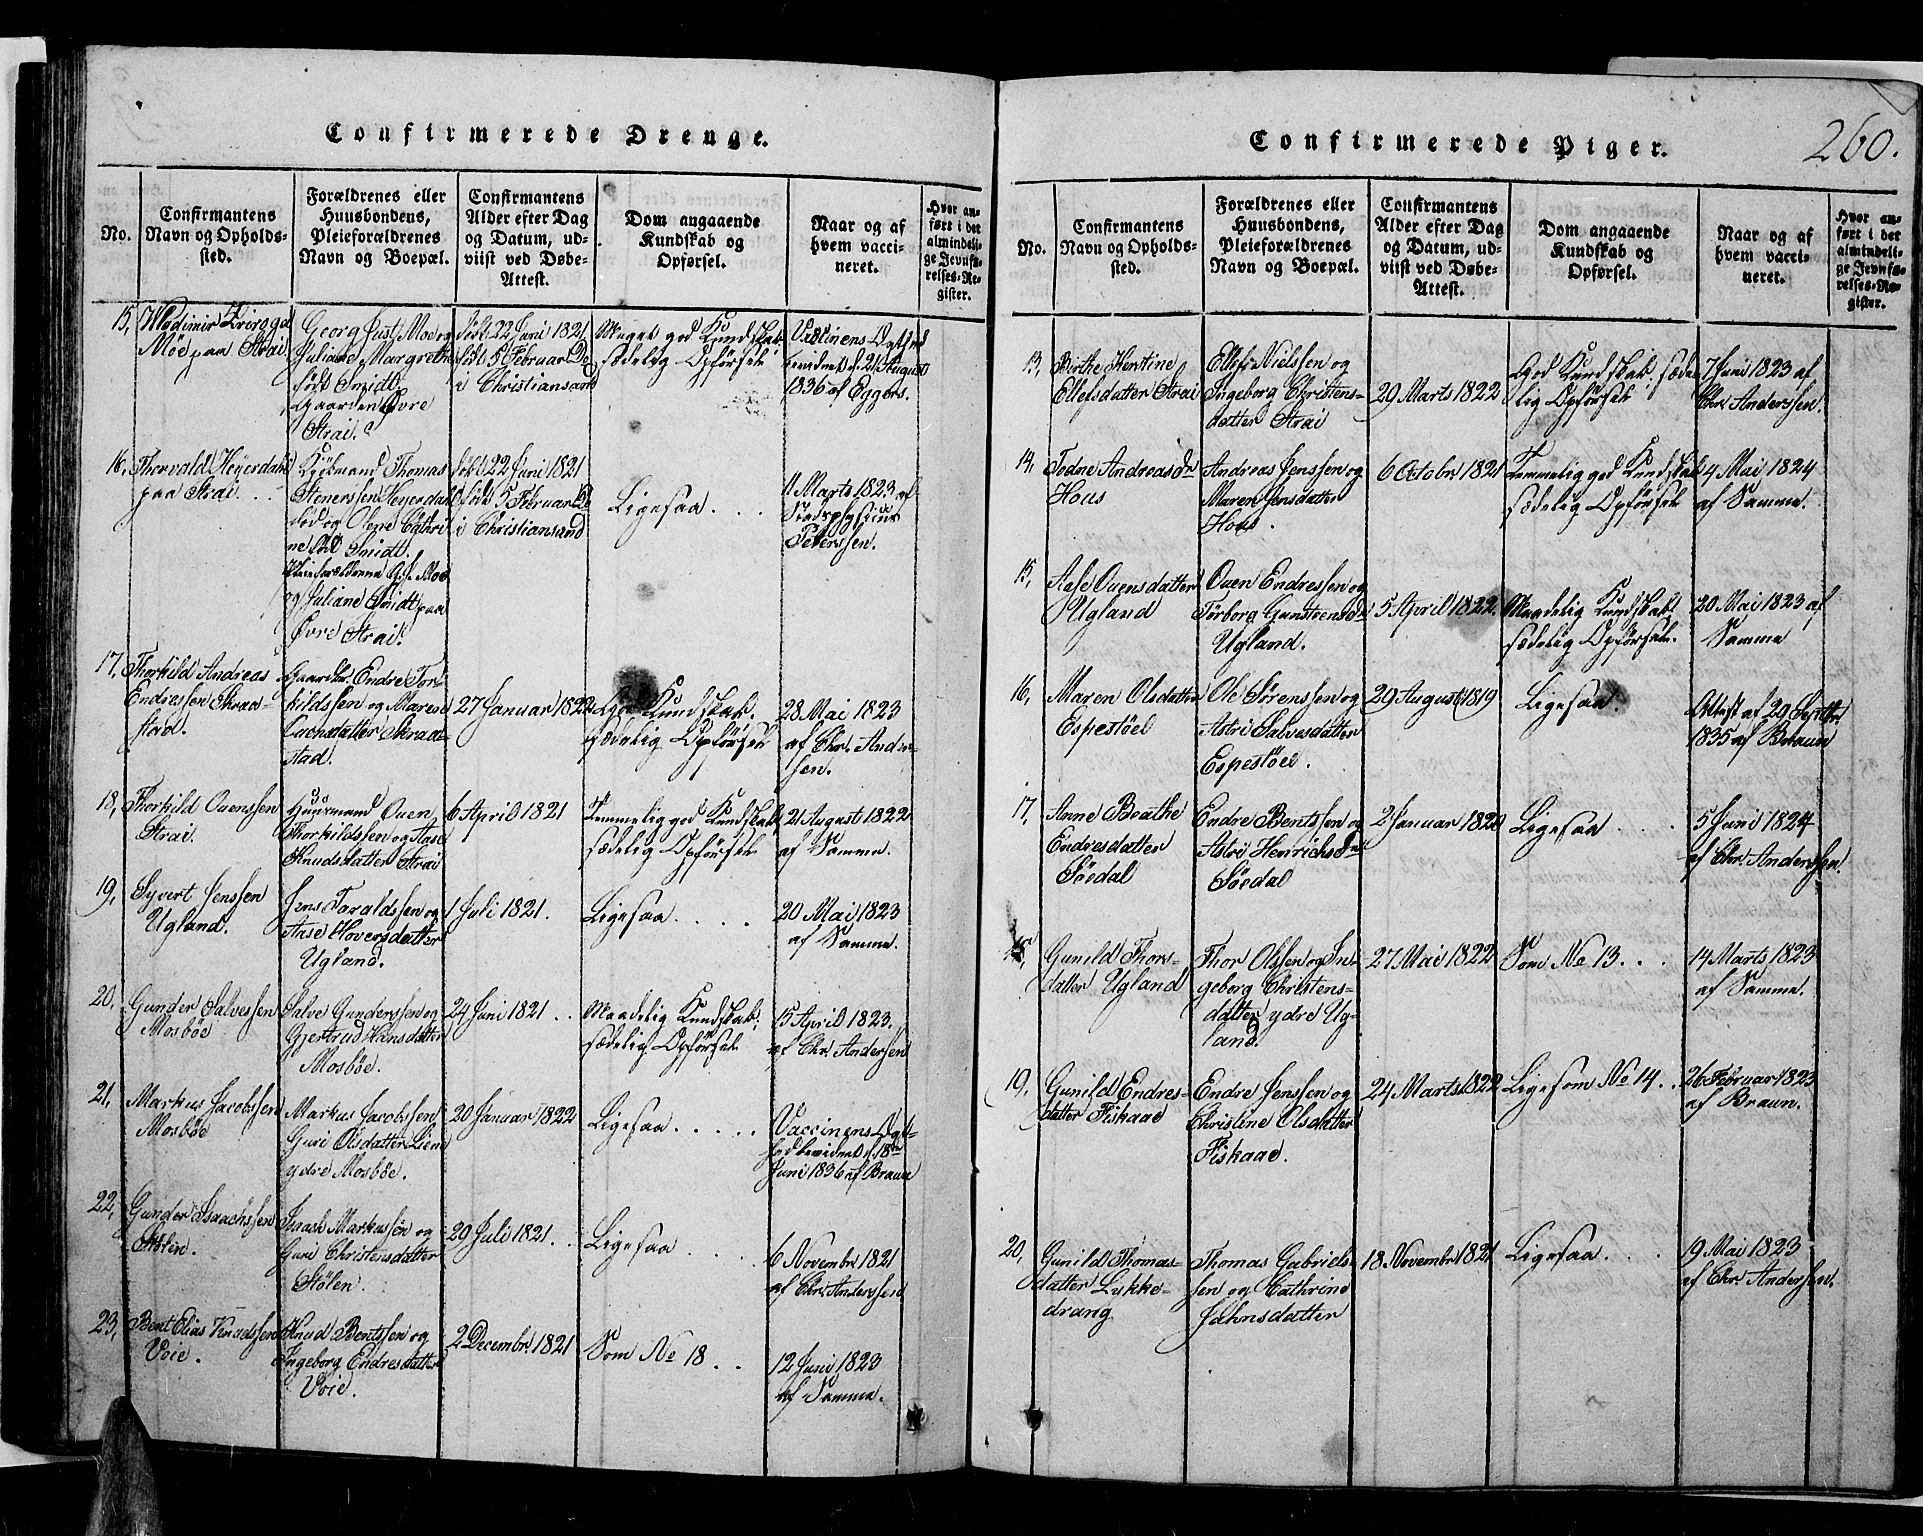 Confirmerede Drenge.
No.
Confirmantens
Navn og Opholds-
sted.
Forældrenes eller
Huusbondens,
Pleieforældrenes
Navn og Boepæl.
Confirmantens
Alder efter Dag
og Datum, ud-
viist ved Døbe-
Attest.
Dom angaaende
Kundskab og
Opførsel.
Naar og af
hvem vacci-
neret.
Hvor an-
ført i det
almindeli-
ge Jevnfø-
relses-Re-
gister.
15,
Wladimir
Möe paa Strai
Georg Just Moe og
Juliane Margrethe
født Smidt
Gaarden Øvre
Strai.
Født 22 Juni 1821
døbt 5 Februar
i Christiansand
Meget god Kundskab
sædelig Opførsel
Vaccinens
21 August
1836 af Eggers.
16,
Thorvald Heyerdahl
paa Strai. . .
Kjøbmand Thomas
Stenerssen Heyerdahl
død og Olene Cathri-
ne født Smidt.
Pleieforældrene G. J. Moe
og Juliane Smidt paa
Øvre Strai.
Født 22 Juni 1821
døbt 5 Februar
i Christiansand
Ligesaa . . .
11 Marts 1823 af
Stadsphysicus
Peterssen.
17,
Thorkild Andreas
Endressen Straa-
stad.
Gaardbr. Endre Tor-
kildssen og Maren
datter Straa-
stad.
27 Januar 1822
God Kundskab.
sædelig Opførsel
28 Mai 1823
af Chr. Anders-
sen.
18,
Thorkild Ouenssen
Strai.
Huusmand Ouen
Thorkildssen og Anse
Knudsdatter Strai
6 April 1821
Temmelig god Kundskab
sædelig Opførsel
21 August 1822
af Samme.
19,
Syvert Jenssen
Ugland.
Jens Taraldssen og
Anse Hoversdatter
Ugland.
1 Juli 1821.
Ligesaa . . . .
20 Mai 1823
af Samme.
20,
Gunder Salvessen
Mosböe
Salve Gunderssen og
Gjertrud Hansdatter
Mosböe.
24 Juni 1821 . .
Maadelig Kundskab,
sædelig Opførsel
15 April 1823,
af Chr. Andersen
21,
Markus Jacobssen
Mosböe
Markus Jacobssen
Guri Olsdatter Liene
ydre Mosböe.
20 Januar 1822
Ligesaa . . . . .
Vaccinens Ægt-
hed bevidnet d. 18de
Juni 1836 af Braun
22,
Gunder Isaachssen
Stölen.
Isaach Markussen og
Guri Christensdatter
Stölen.
29 Juli 1821. .
Ligesaa . . . .
6 Novembr. 1821
af Chr. Anderssen
23,
Bent Elias Knudssen
Voie.
Knud Bentssen og
Ingeborg Endresdatter
Voie.
2 Decembr. 1821
Som No 18 . .
12 Juni 1823
af Samme.
Confirmerede Piger.
260.
No.
Confirmantens
Navn og Opholds-
sted.
Forældrenes eller
Huusbondens,
Pleieforældrenes
Navn og Boepæl.
Confirmantens
Alder efter Dag
og Datum, ud-
viist ved Døbe-
Attest.
Dom angaaende
Kundskab og
Opførsel.
Naar og af
hvem vacci-
neret.
Hvor an-
ført i det
almindeli-
ge Jevnfø-
relses-Re-
gister.
13,
Birthe Kentine
Ellefsdatter Strai
Ellef Nielssen og
Ingeborg Christens-
datter Strai
29 Marts 1822
God Kundskab. sæde-
lig Opførsel
7 Juni 1823 af
Chr. Anderssen.
14,
Todne Andreasdr
Hous
Andreas Jenssen og
Maren Jensdatter
Hous.
6 Octobr. 1821
Temmelig god Kundskab
sædelig Opførsel
4 Mai 1824
af Samme.
15,
Aase Ouensdatter
Ugland
Ouen Endressen og
Torborg
Ugland.
5 April 1822.
Maadelig Kundskab
sædelig Opførsel.
20 Mai 1823 af
Samme
16,
Maren Olsdatter
Espestöel
Ole Sörenssen og
Astri Salvesdatter
Espestöel.
29 August 1819
Ligesaa.
Attest af 29 Septbr
1835 af Braun
17,
Anne Beathe
Endresdatter
Söedal
Endre Bentssen og
Astri Henrichsdr
Söedal
2 Januar 1820
Ligesaa . . . .
5 Juni 1824
af Chr. Anderssen.
18,
Gunild Thors-
datter Ugland
Thor Olssen og In-
geborg Christens-
datter ydre Ug-
land.
27 Mai 1822
Som No 13. . .
14 Marts 1823
af Samme.
19,
Gunild Endres-
datter Fiskaae
Endre Jenssen og
Christine Olsdatter
Fiskaae.
24 Marts 1822
Ligesom No 14 . .
26 Februar 1823
af Braun.
20,
Gunild Thomas-
datter Lykke-
drang
Thomas Gabriels-
sen og Cathrine
Jahnsdatter
18 Novembr. 1821
Ligesaa. . . .
19 Mai 1823
af Chr. Anderssen.